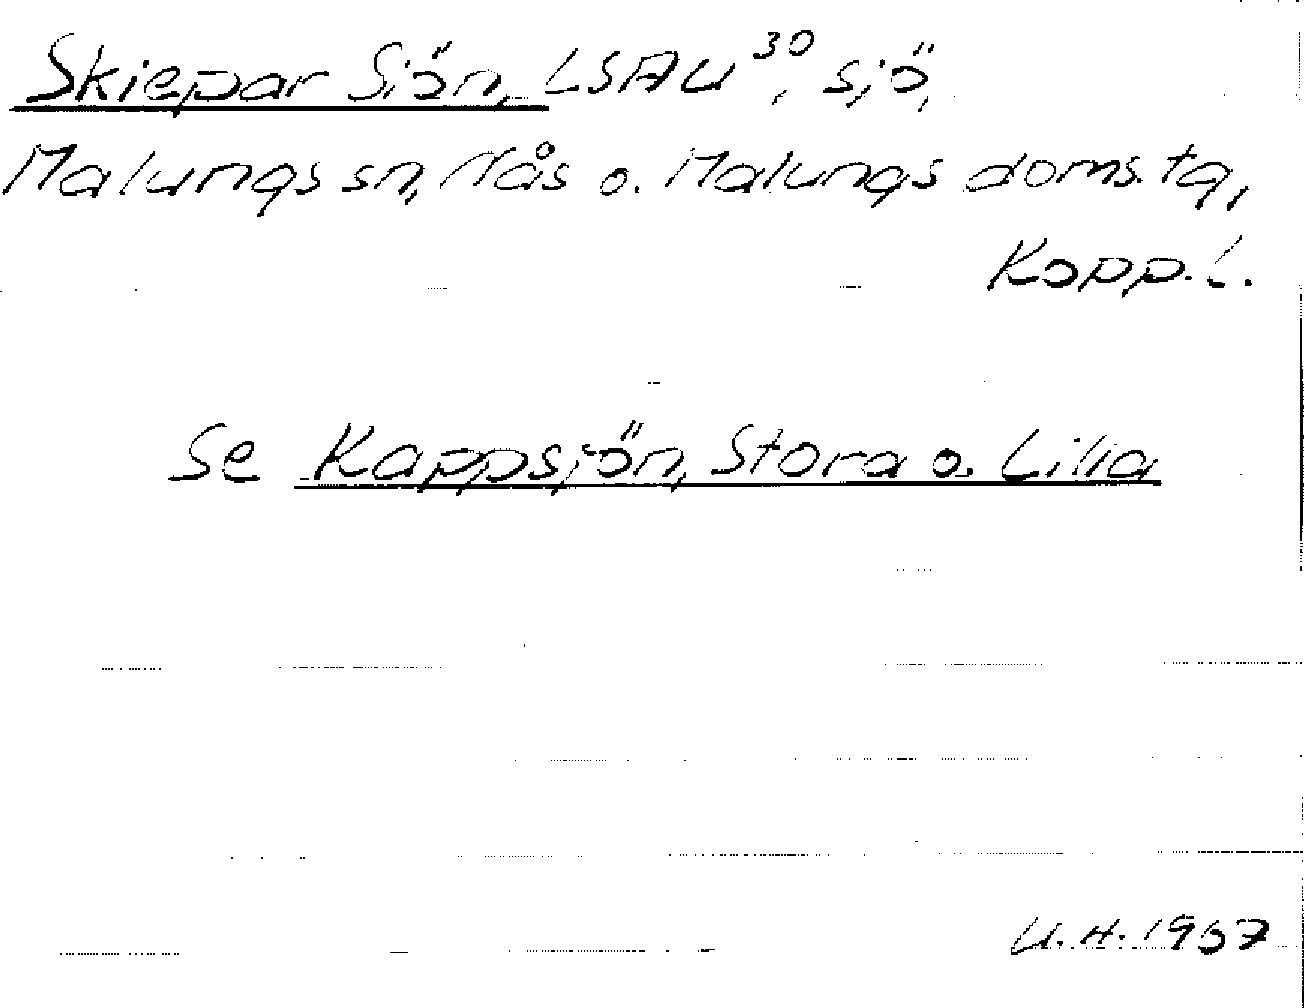 Skiepar Siön, LSAU³⁰, sjö,
Malungs sn, Nås o. Malungs doms. tg,
Kopp. l.
Se Kappsjön, Stora o. Lilla
U.H. 1967